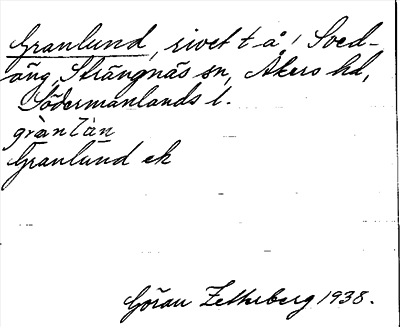 Granlund, rivet t å! Soed-
äng, Strängnäs sn, Åkers hd,
Södermanlands l.
grànlàn
Granlund ek
Göran Zetterberg 1938.